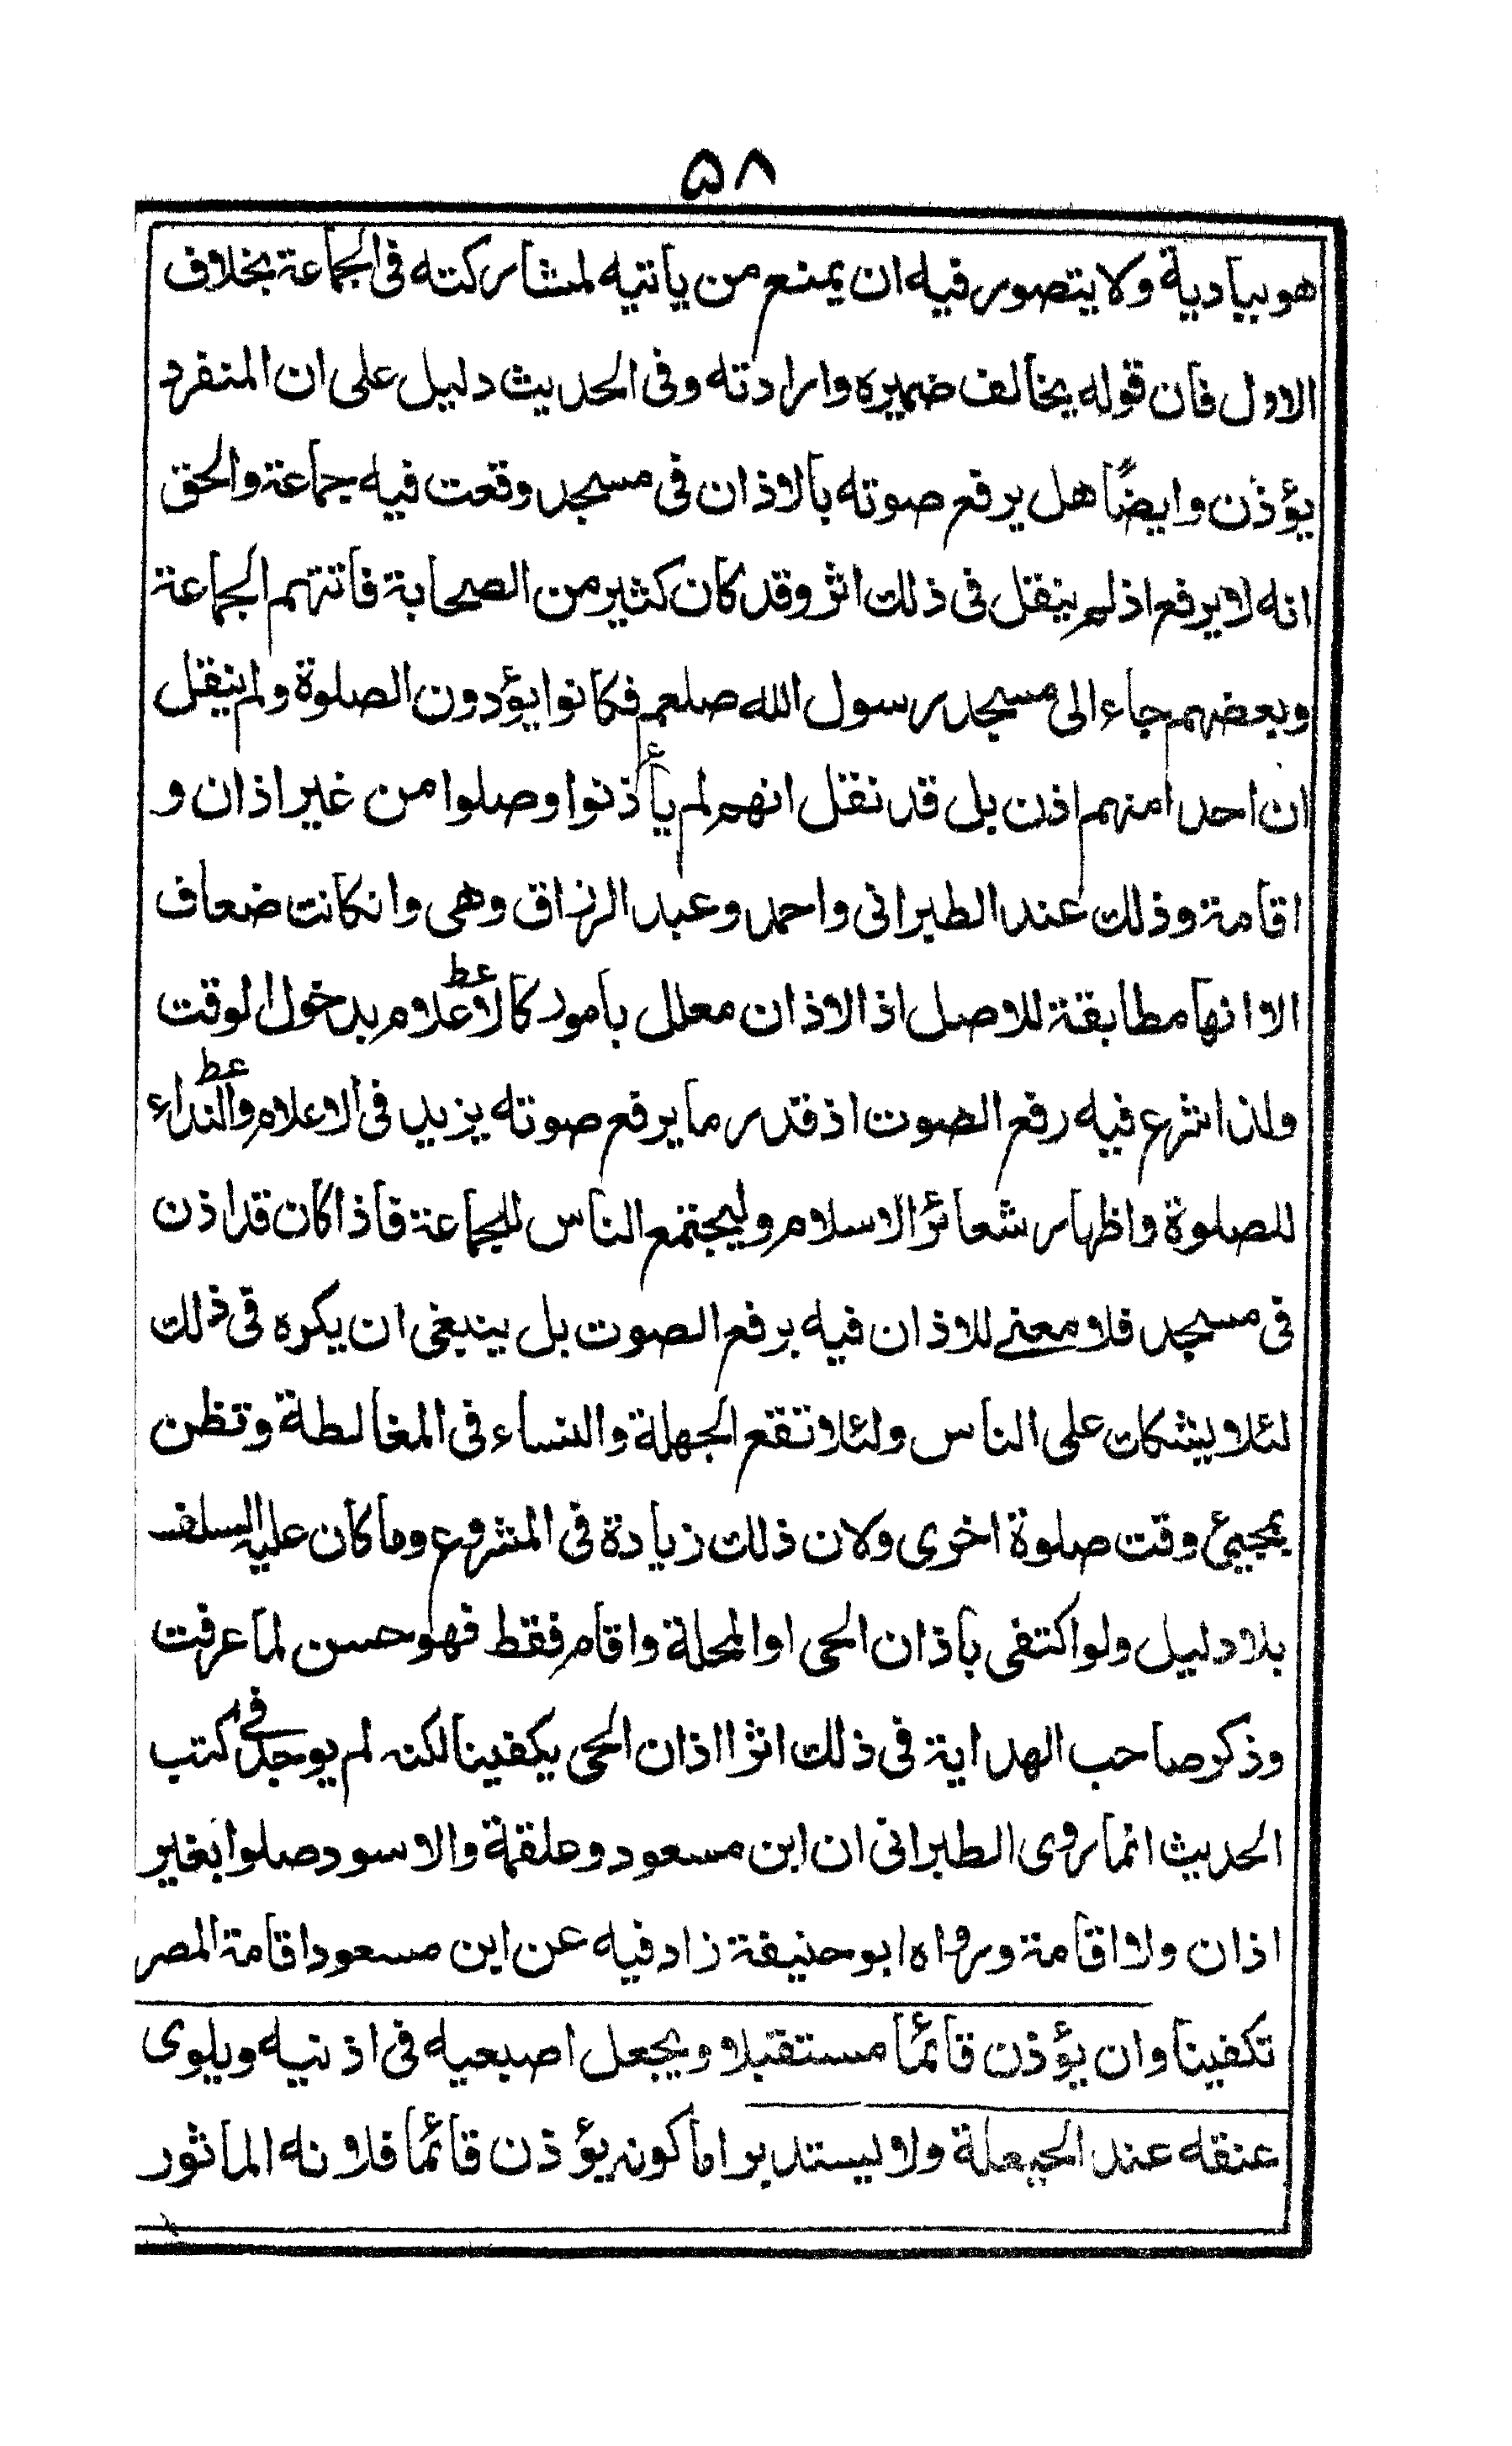 ۵۸
هو ببادية ولا يتصور فيه ان يمنع من ياتيه لمشاركته فى الجماعة بخلاف
الاول فان قوله يخالف ضميره وارادته وفى الحديث دليل على ان المنفرد
يؤذن وايضًا هل يرفع صوته بالاذان فى مسجد وقعت فيه جماعة والحق
انه لا يرفع اذ لم ينقل فى ذلك اثر وقد كان كثير من الصحابة فاتتهم الجماعة
وبعضهم جاء الى مسجد رسول الله صلعم فكانوا يؤدون الصلوة ولم ينقل
ان احدا منهم اذن بل قد نقل انهم لم يأذنوا وصلوا من غير اذان و
اقامة وذلك عند الطبرانى واحمد وعبد الرزاق وهى وانكانت ضعاف
الا انها مطابقة للاصل اذ الاذان معلل بامور كالاعلام بدخول الوقت
ولذا شرع فيه رفع الصوت اذ قدر ما يرفع صوته يزيد فى الاعلام والنداء
للصلوة واظهار شعائر الاسلام وليجتمع الناس للجماعة فاذا كان قد اذن
فى مسجد فلا معنے للاذان فيه برفع الصوت بل ينبغى ان يكره فى ذلك
لئلا يشكك على الناس ولئلا تقع الجهلة والنساء فى المغالطة وتظن
بمجيئ وقت صلوة اخرى ولان ذلك زيادة فى المشروع وما كان عليه السلف
بلا دليل ولو اكتفى باذان الحى او المحلة واقام فقط فهو حسن لما عرفت
وذكر صاحب الهداية فى ذلك اثرا اذان الحى يكفينا لكنه لم يوجد فى كتب
الحديث انما روى الطبرانى ان ابن مسعود وعلقمة والاسود صلوا بغير
اذان ولا اقامة ورواه ابو حنيفة زاد فيه عن ابن مسعود اقامة المصر
تكفينا وان يؤذن قائما مستقبلا ويجعل اصبعيه فى اذنيه ويلوى
عنقه عند الحيعلة ولا يستدبر اما كونه يؤذن قائما فلانه الماثور